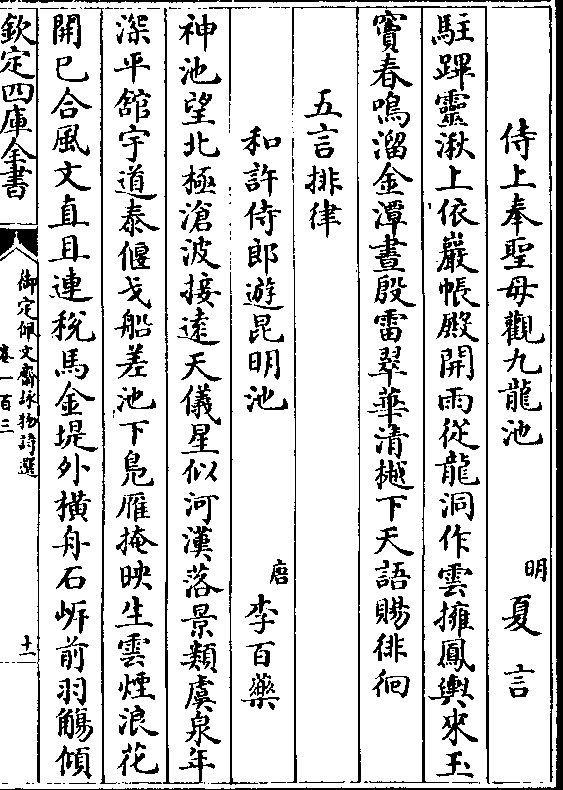 侍上奉聖母觀九龍池
明夏言
駐蹕靈湫上依巖帳殿開雨從龍洞作雲擁鳳輿來玉
竇春鳴溜金潭晝殷雷翠華清樾下天語賜徘徊
五言排律
和許侍郎遊昆明池
唐李百藥
神池望北極滄波接遠天儀星似河漢落景類虞泉年
深平館宇道泰偃戈船差池下鳧雁掩映生雲煙浪花
開已合風文直且連稅馬金堤外橫舟石㟁前羽觴傾
欽定四庫全書
御定佩文齋詠物詩選
卷一百三
十二